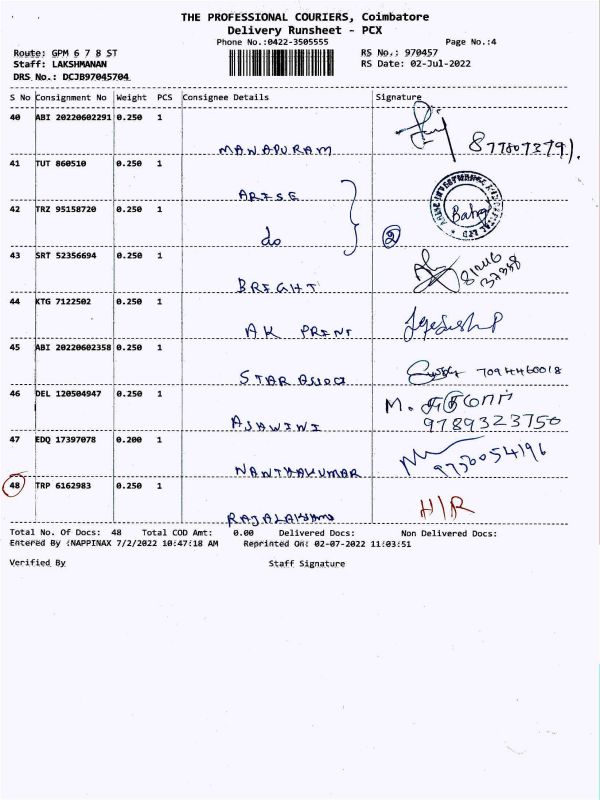 THE PROFESSIONAL COURIERS, Coimbatore
Delivery Runsheet - PCX
Phone No.:0422-3505555 Page No.:4
Route: GPM 6 7 8 ST RS No.: 970457
Staff: LAKSHMANAN RS Date: 02-Jul-2022
DRS No.: DCJB97045704
S No Consignment No Weight PCS Consignee Details Signature
40 ABI 20220602291 0.250 1
MANAPURAM
41 TUT 860510 0.250 1
ARISE
42 TRZ 95158720 0.250 1
do 2
43 SRT 52356694 0.250 1
BRIGHT
44 KTG 7122502 0.250 1
AK PRINT
45 ABI 20220602358 0.250 1
STAR 7094460018
46 DEL 120504947 0.250 1 M.
ASWINI 9789323750
47 EDQ 17397078 0.200 1
NANTHAKUMAR 9750054196
48 TRP 6162983 0.250 1 H/R
RAJALAKSHMI
Total No. Of Docs: 48 Total COD Amt: 0.00 Delivered Docs: Non Delivered Docs:
Entered By :NAPPINAX 7/2/2022 10:47:18 AM Reprinted On: 02-07-2022 11:03:51
Verified By Staff Signature